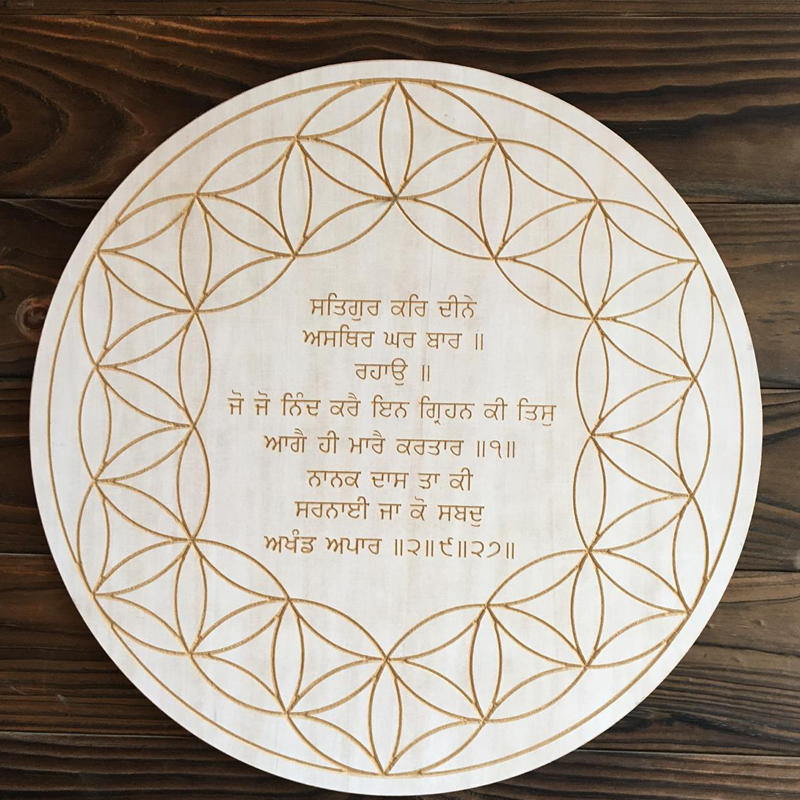 ਸਤਿਗੁਰ ਕਰਿ ਦੀਨੇ
ਅਸਥਿਰ ਘਰ ਬਾਰ ॥
ਰਹਾਉ ॥
ਜੋ ਜੋ ਨਿੰਦ ਕਰੈ ਇਨ ਗ੍ਰਿਹਨ ਕੀ ਤਿਸੁ
ਆਗੈ ਹੀ ਮਾਰੈ ਕਰਤਾਰ ॥੧॥
ਨਾਨਕ ਦਾਸ ਤਾ ਕੀ
ਸਰਨਾਈ ਜਾ ਕੋ ਸਬਦੁ
ਅਖੰਡ ਅਪਾਰ ॥੨॥੯॥੨੭॥